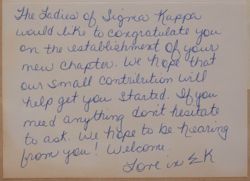 The Ladies of Sigma Kappa
would like to congratulate you
on the establishment of your
new chapter. We hope that
our small contribution will
help get you started. If you
need anything don't hesitate
to ask. We hope to be hearing
from you! Welcome.
Love in ΣK